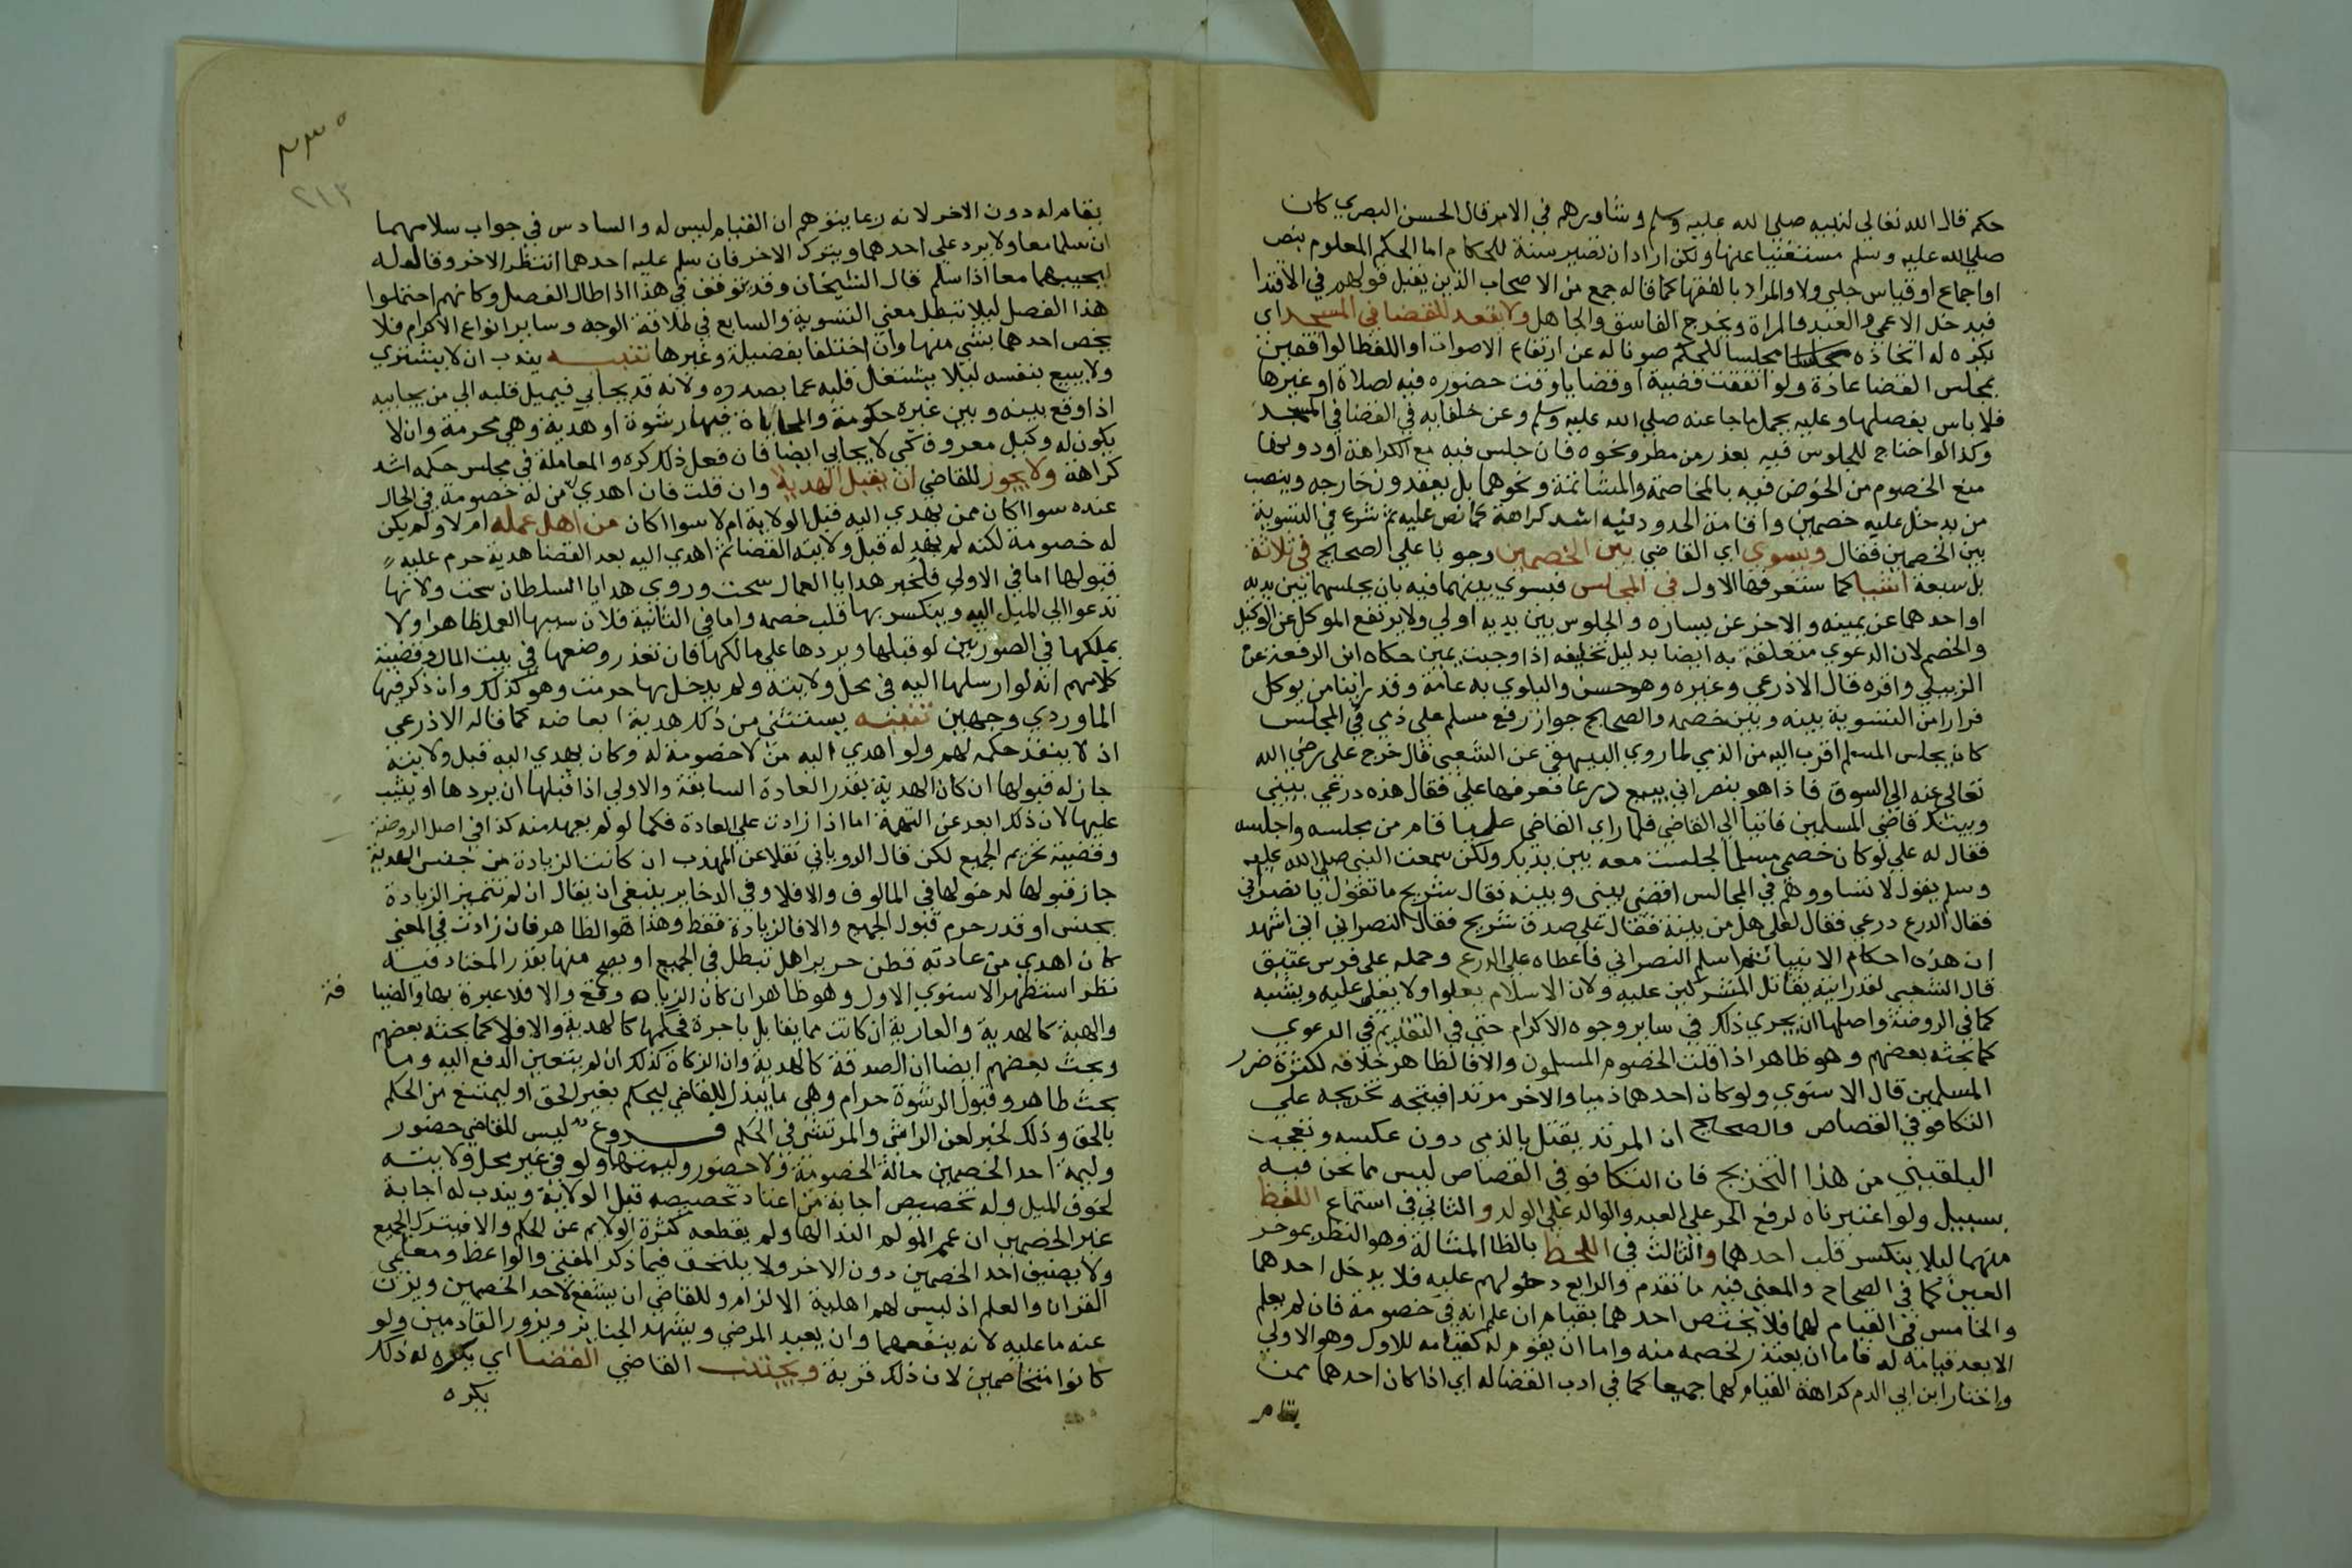 حكم قال الله تعالي لنبيه صلي الله عليه وسلم وشاورهم في الامر قال الحسن البصري كان
صلي الله عليه وسلم مستغنيا عنها ولكن اراد ان تصير سنة للحكام اما الحكم المعلوم بنص
او اجماع او قياس جلي فلا والمراد بالفقها كما قاله جمع من الاصحاب الذين يقبل قولهم في الافتا
فيدخل الاعمي والعبد والمراة ويخرج الفاسق والجاهل ولا يقعد للقضا في المسجد اي
يكره له اتخاذه مجلسا للحكم صونا له عن ارتفاع الاصوات واللغط الواقعين
بمجلس القضا عادة ولو اتفقت قضية او قضايا وقت حضوره فيه لصلاة او غيرها
فلا باس بفصلها وعليه يحمل ما جا عنه صلي الله عليه وسلم وعن خلفايه في القضا في المسجد
وكذا لو احتاج للجلوس فيه بعذر من مطر ونحوه فان جلس فيه مع الكراهة او دونها
منع الخصوم من الخوض فيه بالمخاصمة والمشاتمة ونحوهما بل يقعدون خارجه وينصب
من يدخل عليه خصمين واقامة الحدود فيه اشد كراهة كما نص عليه ثم شرع في التسوية
بين الخصمين فقال ويسوي اي القاضي بين الخصمين وجوبا علي الصحيح في ثلاثة
بل سبعة اشيا كما ستعرفها الاول في المجلس فيسوي بينهما فيه بان يجلسهما بين يديه
او احدهما عن يمينه والاخر عن يساره والجلوس بين يديه اولي ولا يرتفع الموكل عن الوكيل
والخصم لان الدعوي متعلقة به ايضا بدليل تحليفه اذا وجبت يمين حكاه ابن الرفعة عن
الزبيلي واقره قال الاذرعي وغيره وهو حسن والبلوي به عامة وقد راينا من يوكل
فرارا من التسوية بينه وبين خصمه والصحيح جواز رفع مسلم علي ذمي في المجلس
كان يجلس المسلم اقرب اليه من الذمي لما روي البيهقي عن الشعبي قال خرج علي رضي الله
تعالي عنه الي السوق فاذا هو بنصراني يبيع درعا فعرفها علي فقال هذه درعي بيني
وبينك قاضي المسلمين فاتيا الي القاضي فلما راي القاضي عليا قام من مجلسه واجلسه
فقال له علي لو كان خصمي مسلما لجلست معه بين يديك ولكن سمعت النبي صلي الله عليه
وسلم يقول لا تساووهم في المجالس اقض بيني وبينه فقال شريح ما تقول يا نصراني
فقال الدرع درعي فقال لعلي هل من بينة فقال علي صدق شريح فقال النصراني اني اشهد
ان هذه احكام الانبيا ثم اسلم النصراني فاعطاه علي الدرع وحمله علي فرس عتيق
قال الشعبي لقد رايته يقاتل المشركين عليه ولان الاسلام يعلو ولا يعلي عليه ويشبه
كما في الروضة واصلها ان يجري ذلك في ساير وجوه الاكرام حتي في التقديم في الدعوي
كما بحثه بعضهم وهو ظاهر اذا قلت الخصوم المسلمون والا فالظاهر خلافه لكثرة ضرر
المسلمين قال الاسنوي ولو كان احدهما ذميا والاخر مرتدا فيتجه تخريجه علي
التكافو في القصاص والصحيح ان المرتد يقتل بالذمي دون عكسه وتعجب
البلقيني من هذا التخريج فان التكافو في القصاص ليس مما نحن فيه
بسبيل ولو اعتبرناه لرفع الحر علي العبد والوالد علي الولد والثاني في استماع اللفظ
منهما ليلا ينكسر قلب احدهما والثالث في اللحظ بالظا المشالة وهو النظر بموخر
العين كما في الصحاح والمعني فيه ما تقدم والرابع دخولهم عليه فلا يدخل احدهما
والخامس في القيام لهما فلا يختص احدهما بقيام ان علم انه في خصومة فان لم يعلم
الا بعد قيامه له فاما ان يعتذر لخصمه منه واما ان يقوم له كقيامه للاول وهو الاولي
واختار ابن ابي الدم كراهة القيام لهما جميعا كما في ادب القضا له اي اذا كان احدهما ممن
يقام
٢١٣
يقام له دون الاخر لانه ربما يتوهم ان القيام ليس له والسادس في جواب سلامهما
ان سلما معا ولا يرد علي احدهما ويترك الاخر فان سلم عليه احدهما انتظر الاخر وقال له
ليجيبهما معا اذا سلم قال الشيخان وقد يتوقف في هذا اذا طال الفصل وكانهم احتملوا
هذا الفصل ليلا تبطل معني التسوية والسابع في طلاقة الوجه وساير انواع الاكرام فلا
يخص احدهما بشي منها وان اختلفا بفضيلة وغيرها تنبيه يندب ان لا يشتري
ولا يبيع بنفسه ليلا يشتغل قلبه عما بصدده ولانه قد يحابي فيميل قلبه الي من يحابيه
اذا وقع بينه وبين غيره حكومة والمحاباة فيها رشوة او هدية وهي محرمة وان لا
يكون له وكيل معروف كي لا يحابي ايضا فان فعل ذلك كره والمعاملة في مجلس حكمه اشد
كراهة ولا يجوز للقاضي ان يقبل الهدية وان قلت فان اهدي من له خصومة في الحال
عنده سوا اكان ممن يهدي اليه قبل الولاية ام لا سوا اكان من اهل عمله ام لا ولم يكن
له خصومة لكنه لم يهد له قبل ولايته القضا ثم اهدي اليه بعد القضا هدية حرم عليه
قبولها اما في الاولي فلخبر هدايا العمال سحت وروي هدايا السلطان سحت ولانها
تدعو الي الميل اليه وينكسر بها قلب خصمه واما في الثانية فلان سببها العمل ظاهرا ولا
يملكها في الصورتين لو قبلها ويردها علي مالكها فان تعذر وضعها في بيت المال وقضية
كلامهم انه لو ارسلها اليه في محل ولايته ولم يدخل بها حرمت وهو كذلك وان ذكر فيها
الماوردي وجهين تنبيه يستثني من ذلك هدية ابعاضه كما قاله الاذرعي
اذ لا ينفذ حكمه لهم ولو اهدي اليه من لا خصومة له وكان يهدي اليه قبل ولايته
جاز له قبولها ان كان الهدية بقدر العادة السابقة والاولي اذا قبلها ان يردها او يثيب
عليها لان ذلك ابعد عن التهمة اما اذا زادت علي العادة فكما لو لم يعهد منه كذا في اصل الروضة
وقضيته تحريم الجميع لكن قال الروياني نقلا عن المهذب ان كانت الزيادة من جنس الهدية
جاز قبولها لدخولها في المالوف والا فلا وفي الذخاير ينبغي ان يقال ان لم تتميز الزيادة
بجنس او قدر حرم قبول الجميع والا فالزيادة فقط وهذا هو الظاهر فان زادت في المعني
كان اهدي من عادته قطن حريرا هل تبطل في الجميع او يصح منها بقدر المعتاد فيه
نظر استظهر الاسنوي الاول وهو ظاهر ان كان للزيادة وقع والا فلا عبرة بها والضيا
فة
والهبة كالهدية والعارية ان كانت مما يقابل باجرة فحكمها كالهدية والا فلا كما بحثه بعضهم
وبحث بعضهم ايضا ان الصدقة كالهدية وان الزكاة كذلك ان لم يتعين الدفع اليه وما
بحث ظاهر وقبول الرشوة حرام وهي ما يبذل للقاضي ليحكم بغير الحق او ليمتنع من الحكم
بالحق وذلك لخبر لعن الراشي والمرتشي في الحكم فروع ليس للقاضي حضور
وليمة احد الخصمين حالة الخصومة ولا حضور وليمتهما ولو في غير محل ولايته
لخوف الميل وله تخصيص اجابة من اعتاد تخصيصه قبل الولاية ويندب له اجابة
غير الخصمين ان عمم المولم الندا لها ولم يقطعه كثرة الولايم عن الحكم والا فيترك الجميع
ولا يضيف احد الخصمين دون الاخر ولا يلتحق فيما ذكر المفتي والواعظ ومعلمي
القران والعلم اذ ليس لهم اهلية الالزام وللقاضي ان يشفع لاحد الخصمين ويزن
عنه ما عليه لانه ينفعهما وان يعيد المرضي ويشهد الجنايز ويزور القادمين ولو
كانوا متخاصمين لان ذلك قربة ويجتنب القاضي القضا اي يكره له ذلك
يكره